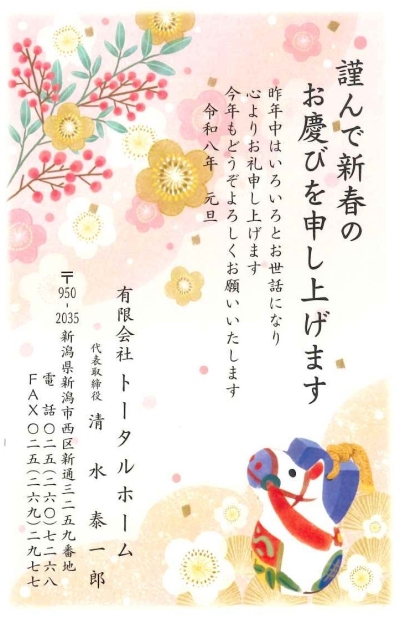 謹んで新春の
お慶びを申し上げます
昨年中はいろいろとお世話になり
心よりお礼申し上げます
今年もどうぞよろしくお願いいたします
令和八年 元旦
有限会社 トータルホーム
代表取締役 清水泰一郎
〒950-2035 新潟県新潟市西区新通三二五九番地
電話 〇二五(二六〇)七二六八
FAX 〇二五(二六九)二九七七